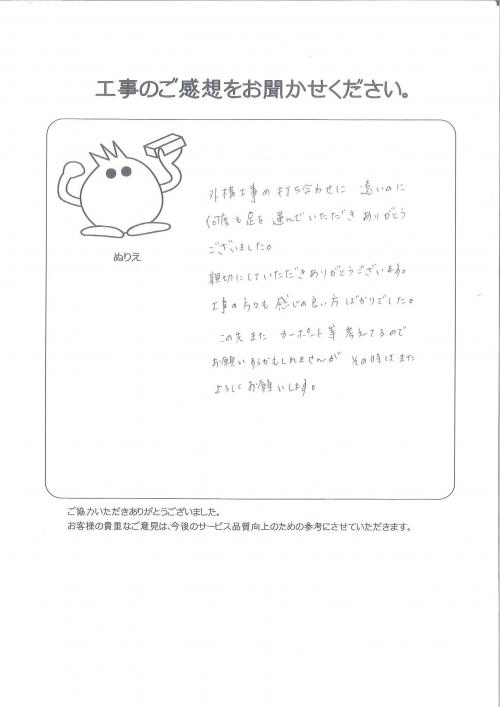 工事のご感想をお聞かせください。
ぬりえ
外構工事の打ち合わせに 遠いのに
何度も足を運んでいただき ありがとう
ございました。
親切にしていただきありがとうございます。
工事の方々も感じの良い方ばかりでした。
この先また カーポート等考えてるので
お願いするかもしれませんが その時はまた
よろしくお願いします。
ご協力いただきありがとうございました。
お客様の貴重なご意見は、今後のサービス品質向上のための参考にさせていただきます。